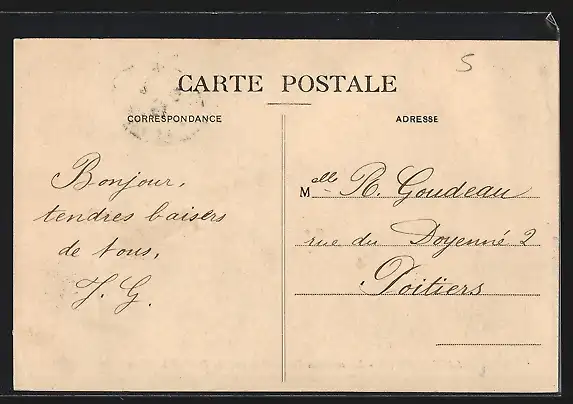 S
CARTE POSTALE
CORRESPONDANCE
Bonjour,
tendres baisers
de tous,
J. G.
ADRESSE
Melle R. Goudeau
rue du Doyenné 2
Poitiers